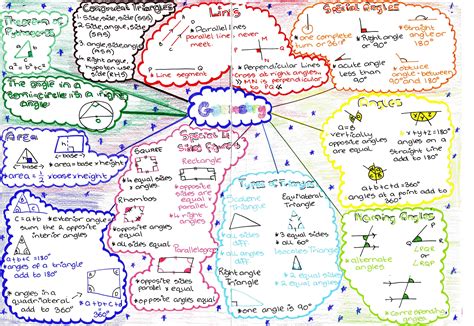 Theorem of
Pythagoras
a² = b² + c²
Congruent Triangles
1. Side, side, side
(SSS)
2. Side, angle, side
(SAS)
3. angle, side, angle
(ASA)
4. Right angle,
hypotenuse
side
(RHS)
Lines
* Parallel lines
parallel lines never
meet
* Line segment
* Perpendicular Lines
cross at right angles.
Special Angles
* one complete
turn or 360°
* Straight
angle or
180°
* Right angle
or 90°
* acute angle
less than
90°
* obtuse
angle between
90° and 180°
The angle in a
semi-circle is a right
angle
Geometry
Area
<-base->
* area = base × height
<-base->
* area = ½ × base × height
Special 4
Sided Figures
Square
* 4 equal sides
* 4 equal
angles
Rectangle
* opposite
sides equal
* 4 right
angles
Rhombus
* opposite
angles equal
* all sides
equal
Parallelogram
* opposite sides
parallel + equal
* opposite
angles equal
Angles
a = b
vertically
opposite
angles
are equal
* x+y+z=180°
angles on a
Straight line
add to 180°
* a+b+c+d=360°
angles at a point add to
360°
* exterior angle =
sum the 2 opposite
interior angles
a+b+c=180°
angles of a triangle
add to 180°
* angles in a
quadrilateral
add to 360°
a+b+c+d
=360°
Types of Triangles
Scalene
Triangle
* all sides
diff
* all angles
diff
Equilateral
Triangle
* 3 equal
sides
* all 60°
Isosceles Triangle
* 2 equal
sides
* 2 equal angles
Right angle
Triangle
* one angle is 90°
Naming Angles
* alternate
angles
* corresponding
angles